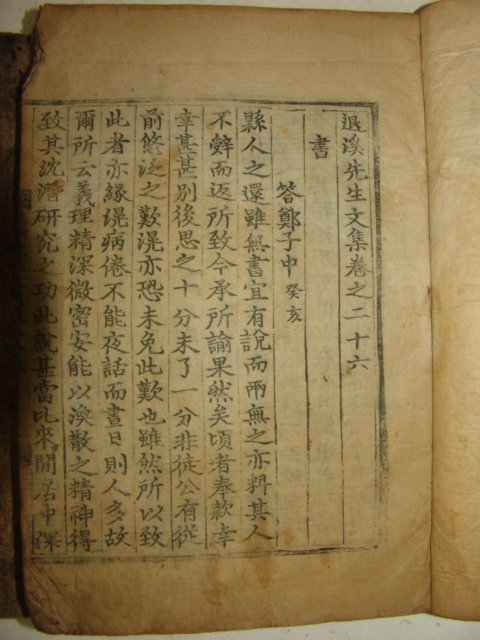 退溪先生文集卷之二十六
書
答鄭子中 癸亥
縣人之還雖無書宜有說而兩無之亦料其人
不辤而返所致今承所諭果然矣頃者奉款幸
幸甚甚別後思之十分未了一分非徒公有從
前悠泛之歎滉亦恐未免此歎也雖然所以致
此者亦緣滉病倦不能夜話而晝日則人多故
爾所云義理精深微密安能以渙散之精神得
致其沈潛硏究之功此說甚當比來閒居中深